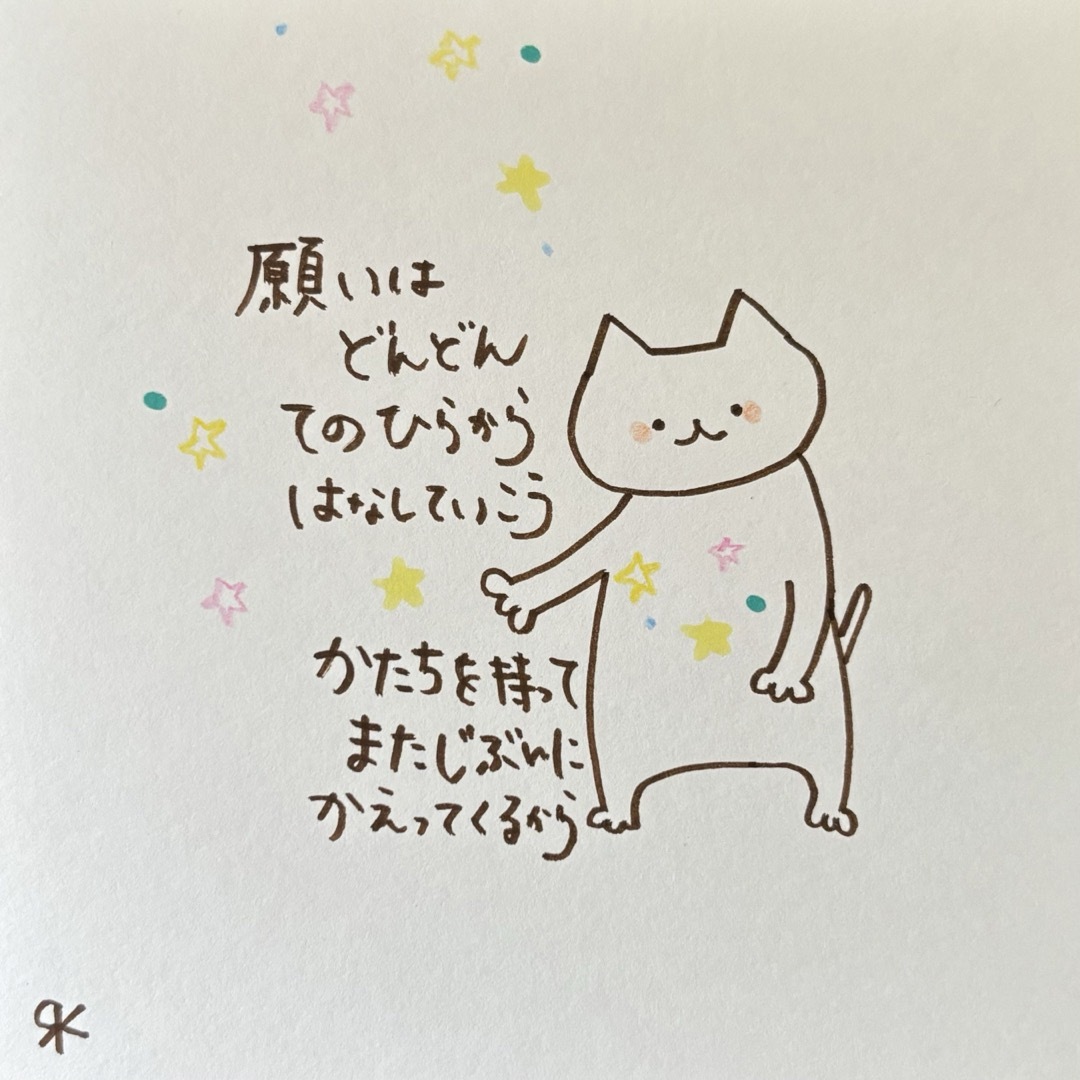 願いは
どんどん
てのひらから
はなしていこう
かたちを持って
またじぶんに
かえってくるから